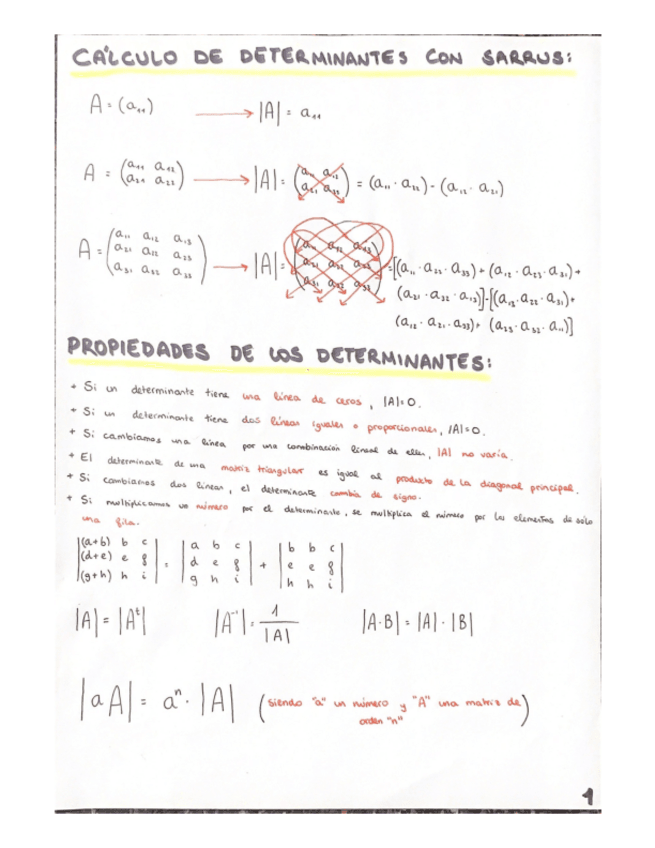 CÁLCULO DE DETERMINANTES CON SARRUS:
A = (a₁₁) → |A| = a₁₁
A = (a₁₁ a₁₂ → |A| = (a₁₁ a₁₂ = (a₁₁ · a₂₂) - (a₁₂ · a₂₁)
a₂₁ a₂₂) a₂₁ a₂₂)
A = (a₁₁ a₁₂ a₁₃ → |A| = (a₁₁ a₁₂ a₁₃ = [(a₁₁ · a₂₂ · a₃₃) + (a₁₂ · a₂₃ · a₃₁) +
a₂₁ a₂₂ a₂₃ a₂₁ a₂₂ a₂₃ (a₂₁ · a₃₂ · a₁₃)] - [(a₁₃ · a₂₂ · a₃₁) +
a₃₁ a₃₂ a₃₃) a₃₁ a₃₂ a₃₃) (a₁₂ · a₂₁ · a₃₃) + (a₂₃ · a₃₂ · a₁₁)]
PROPIEDADES DE LOS DETERMINANTES:
+ Si un determinante tiene una línea de ceros, |A|=0.
+ Si un determinante tiene dos líneas iguales o proporcionales, |A|=0.
+ Si cambiamos una línea por una combinación lineal de ellas, |A| no varía.
+ El determinante de una matriz triangular es igual al producto de la diagonal principal.
+ Si cambiamos dos líneas, el determinante cambia de signo.
+ Si multiplicamos un número por el determinante, se multiplica el número por los elementos de solo
una fila.
|(a+b) b c| |a b c| |b b c|
|(d+e) e f| = |d e f| + |e e f|
|(g+h) h i| |g h i| |h h i|
|A| = |Aᵗ| |A⁻¹| = 1/|A| |A·B| = |A| · |B|
|aA| = aⁿ · |A| (siendo "a" un número y "A" una matriz de
orden "n")
1